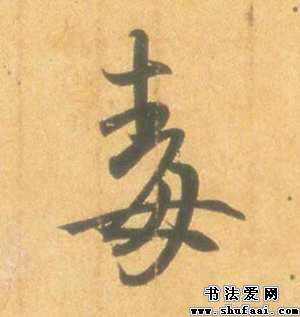 毒
书法爱网
www.shufaai.com